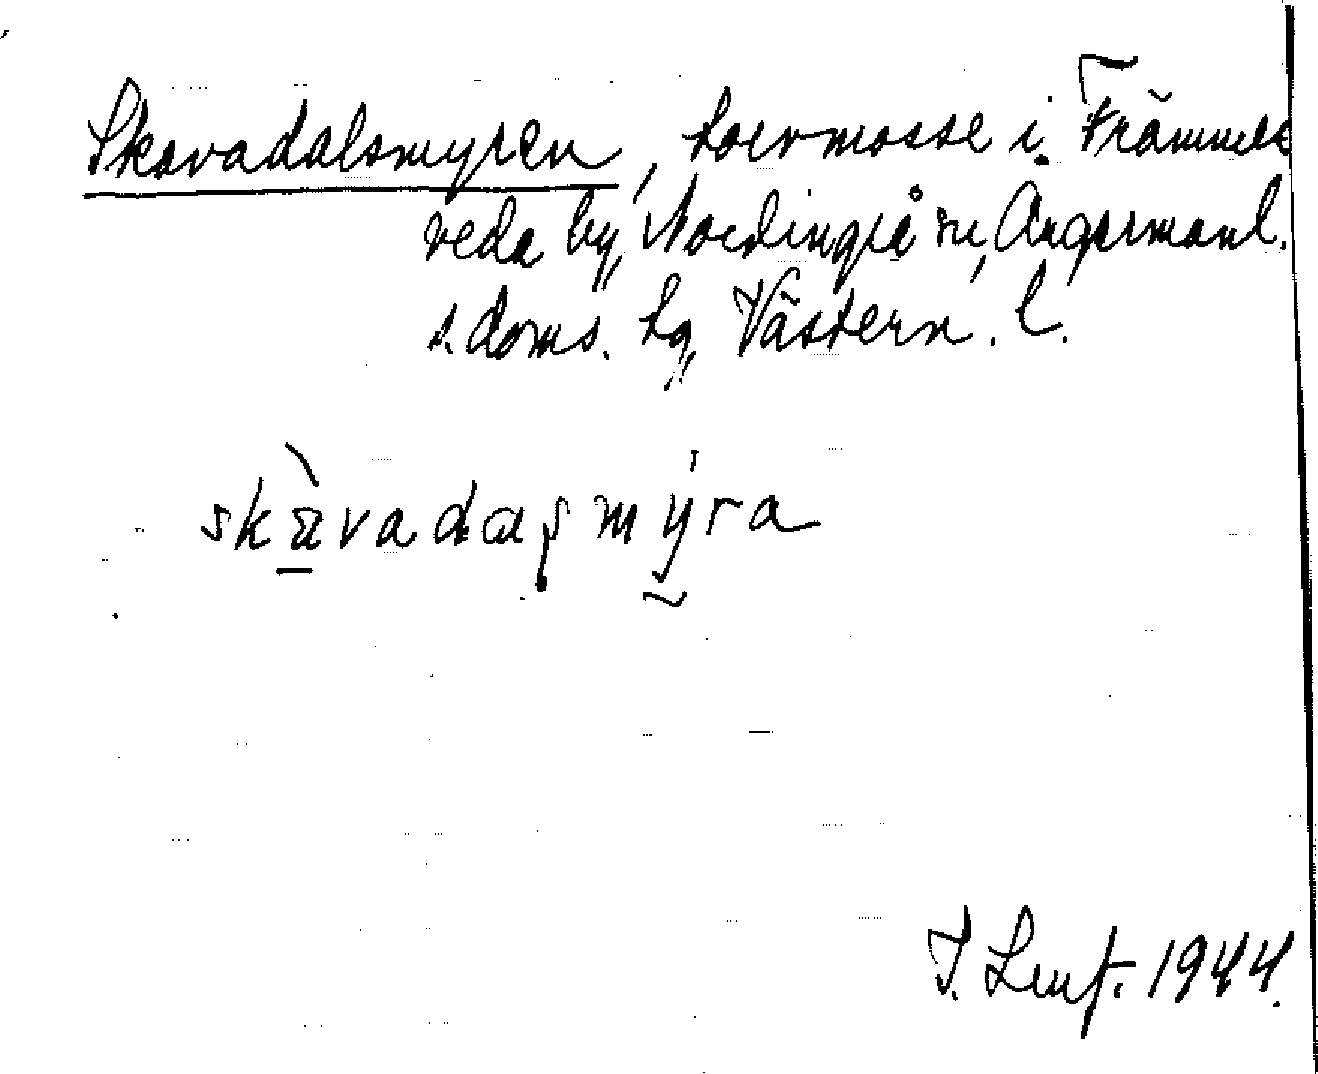 Skavadalsmyren, torvmosse i Främmes
veda by, Nordingrå sn, Ångermanl.
s. doms. tg, Västern. l.
skàvadaʂmýra
1944.